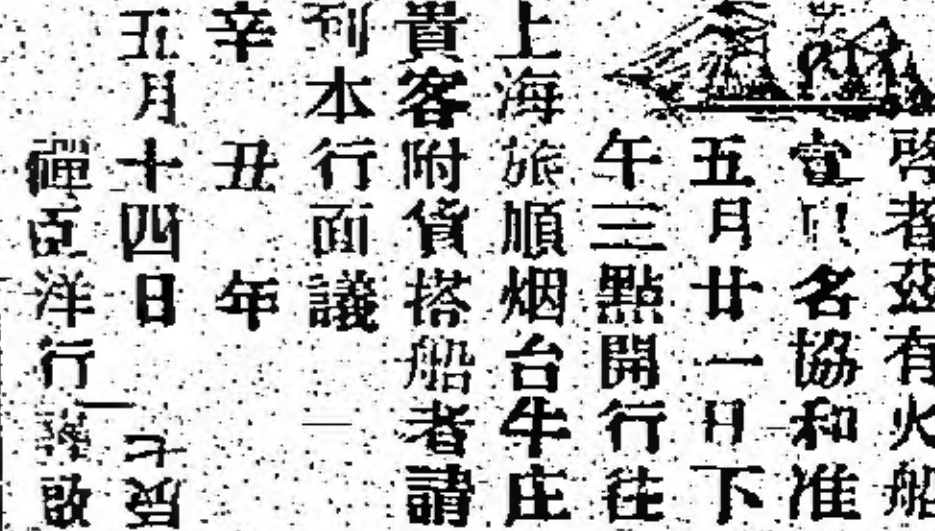 啓者茲有火船
壹名協和准
五月廿一日下
午三點開行往
上海旅順烟台牛庄
貴客附貨搭船者請
到本行面議
辛丑年
五月十四日
禪臣洋行啟